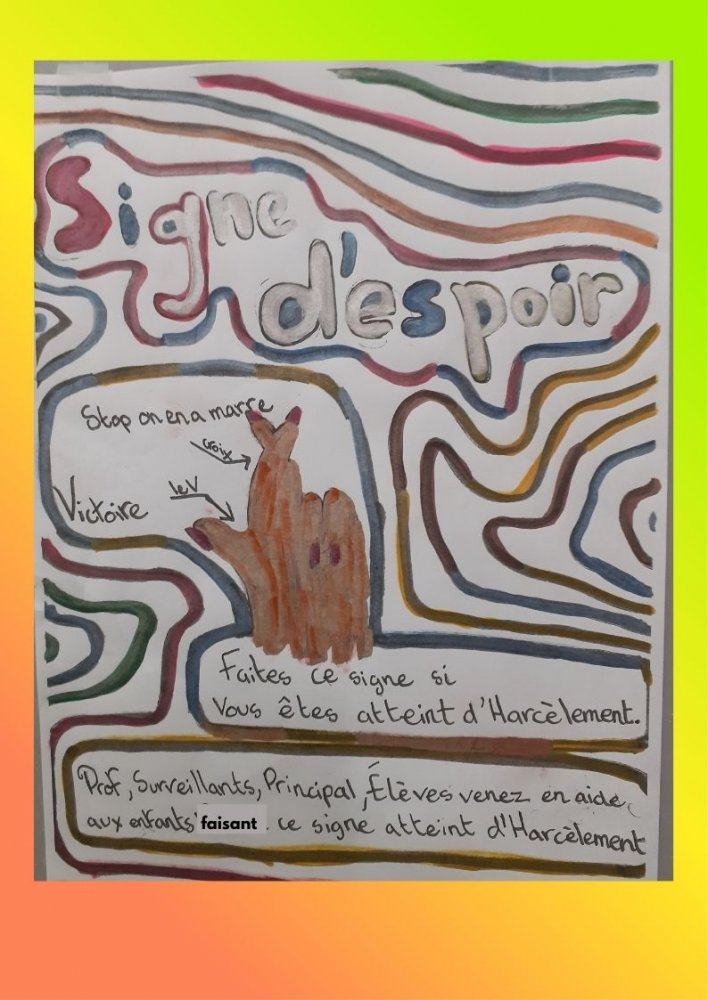 Signe
d'espoir
Stop on en a marre
croix
le V
Victoire
Faites ce signe si
Vous êtes atteint d'Harcèlement.
Prof, Surveillants, Principal, Élèves venez en aide
aux enfants faisant ce signe atteint d'Harcèlement